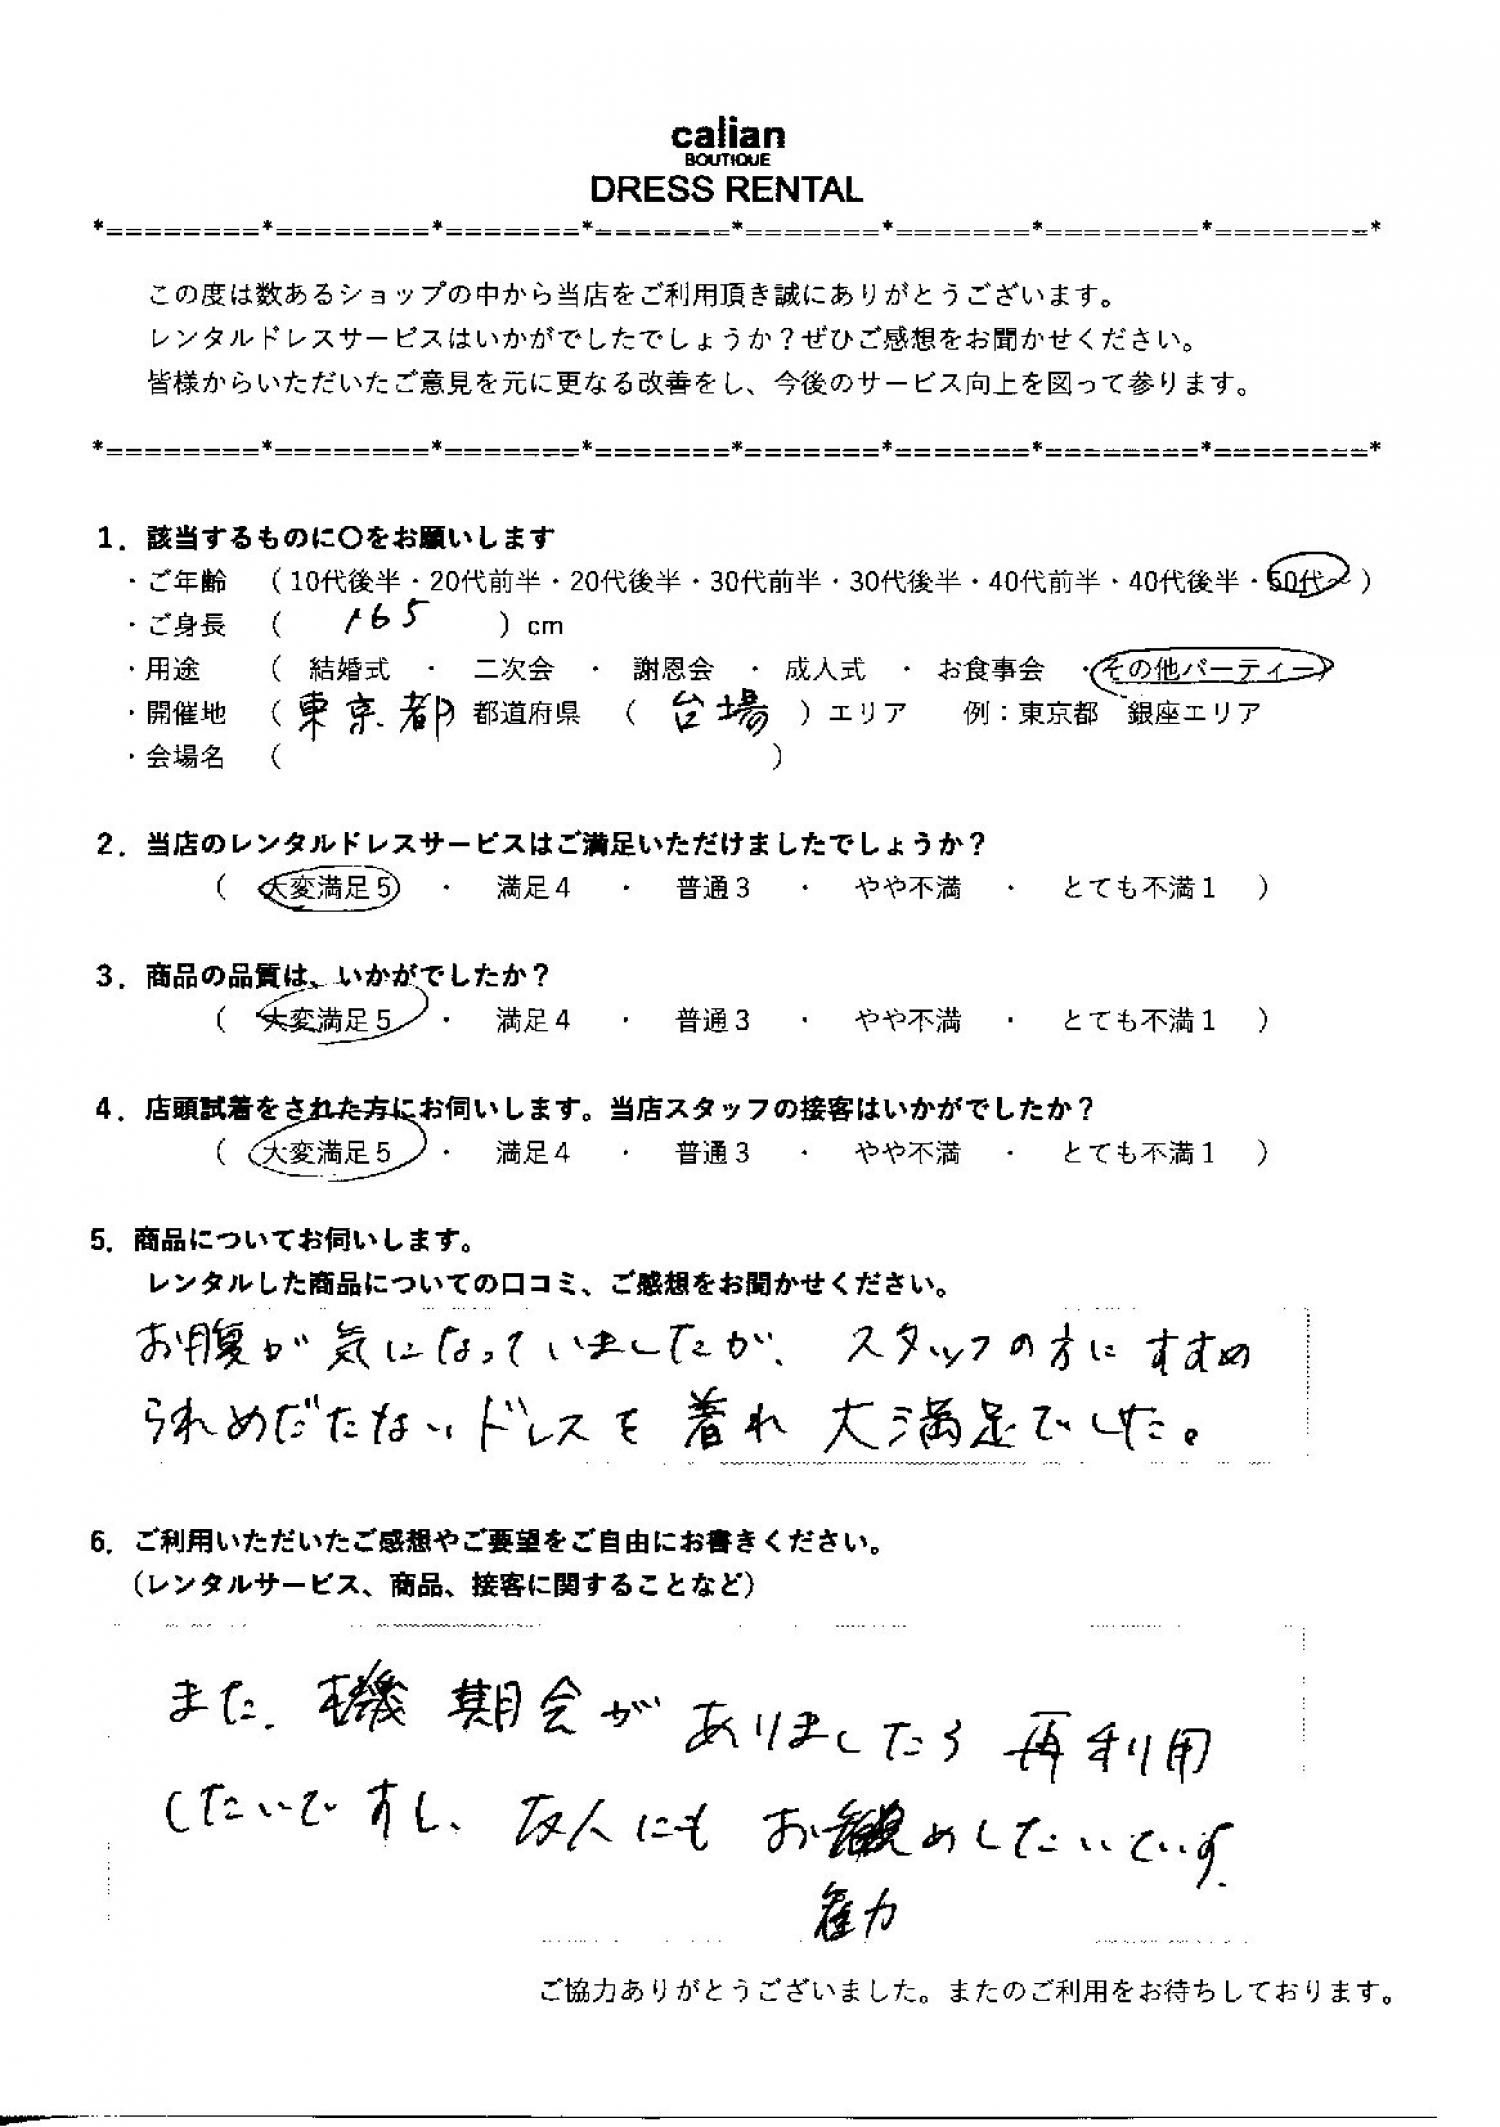 calian
BOUTIQUE
DRESS RENTAL
*========*========*=======*=======*=======*=======*========*========*
この度は数あるショップの中から当店をご利用頂き誠にありがとうございます。
レンタルドレスサービスはいかがでしたでしょうか？ぜひご感想をお聞かせください。
皆様からいただいたご意見を元に更なる改善をし、今後のサービス向上を図って参ります。
*========*========*=======*=======*=======*=======*========*========*
1．該当するものに〇をお願いします
・ご年齢 （10代後半・20代前半・20代後半・30代前半・30代後半・40代前半・40代後半・50代～）
・ご身長 （ 165 ）cm
・用途 （ 結婚式 ・ 二次会 ・ 謝恩会 ・ 成人式 ・ お食事会 ・その他パーティー）
・開催地 （東京都）都道府県 （ 台場 ）エリア 例：東京都 銀座エリア
・会場名 （ ）
2．当店のレンタルドレスサービスはご満足いただけましたでしょうか？
（ 大変満足5 ・ 満足4 ・ 普通3 ・ やや不満 ・ とても不満1 ）
3．商品の品質は、いかがでしたか？
（ 大変満足5 ・ 満足4 ・ 普通3 ・ やや不満 ・ とても不満1 ）
4．店頭試着をされた方にお伺いします。当店スタッフの接客はいかがでしたか？
（ 大変満足5 ・ 満足4 ・ 普通3 ・ やや不満 ・ とても不満1 ）
5．商品についてお伺いします。
レンタルした商品についての口コミ、ご感想をお聞かせください。
お腹が気になっていましたが、スタッフの方にすすめ
られめだたないドレスを着れ大満足でした。
6．ご利用いただいたご感想やご要望をご自由にお書きください。
（レンタルサービス、商品、接客に関することなど）
また、機期会がありましたら再利用
したいですし、友人にもお めしたいです。
勧
ご協力ありがとうございました。またのご利用をお待ちしております。